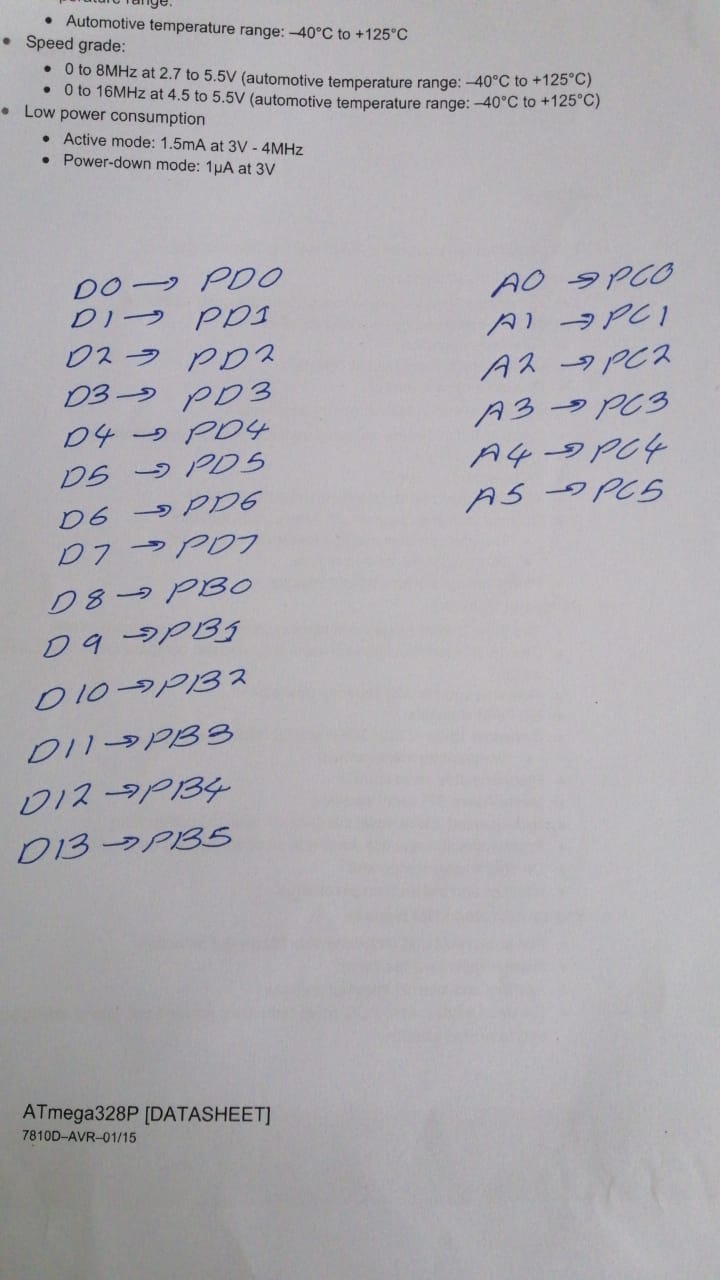 • Automotive temperature range: –40°C to +125°C
• Speed grade:
• 0 to 8MHz at 2.7 to 5.5V (automotive temperature range: –40°C to +125°C)
• 0 to 16MHz at 4.5 to 5.5V (automotive temperature range: –40°C to +125°C)
• Low power consumption
• Active mode: 1.5mA at 3V - 4MHz
• Power-down mode: 1µA at 3V
D0 → PD0
D1 → PD1
D2 → PD2
D3 → PD3
D4 → PD4
D5 → PD5
D6 → PD6
D7 → PD7
D8 → PB0
D9 → PB1
D10 → PB2
D11 → PB3
D12 → PB4
D13 → PB5
A0 → PC0
A1 → PC1
A2 → PC2
A3 → PC3
A4 → PC4
A5 → PC5
ATmega328P [DATASHEET]
7810D–AVR–01/15